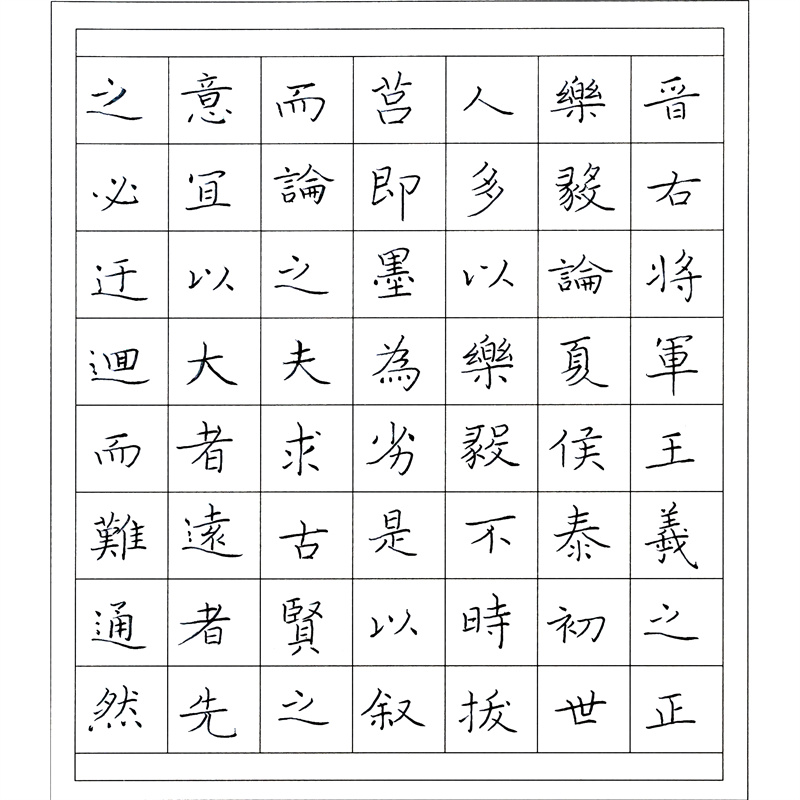 晉右將軍王羲之正
樂毅論夏侯泰初世
人多以樂毅不時拔
莒即墨為劣是以叙
而論之夫求古賢之
意宜以大者遠者先
之必迂迴而難通然